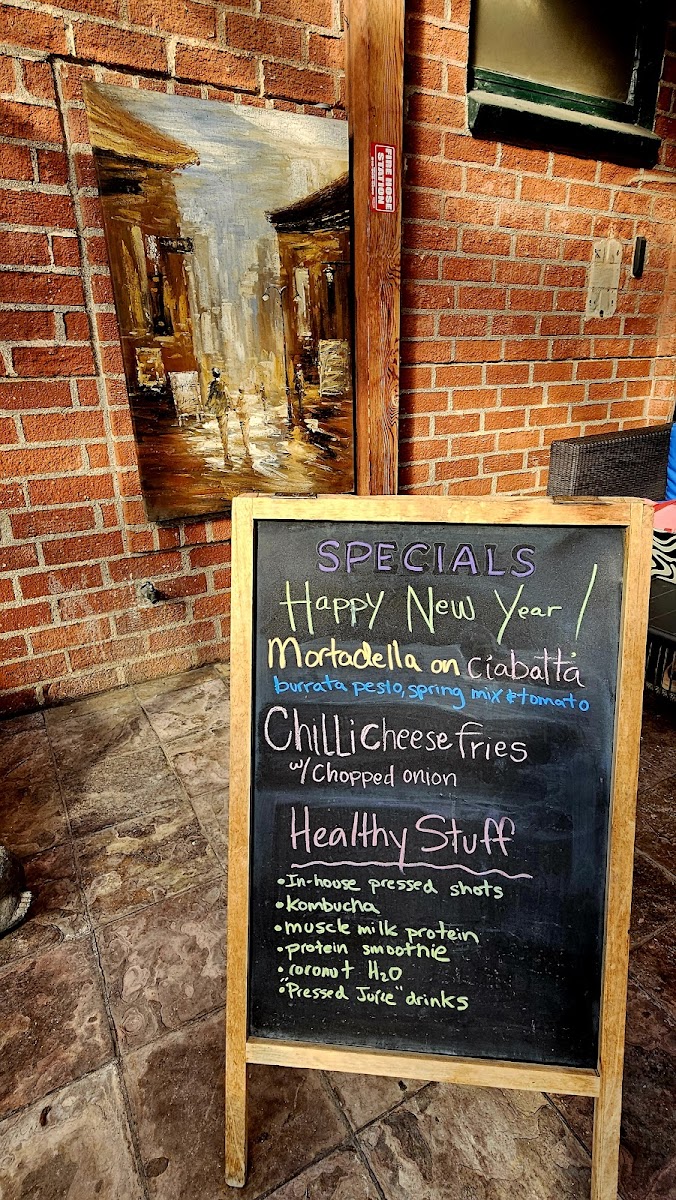 FIRE HOSE
STATION
SPECIALS
Happy New Year!
Mortadella on ciabatta
burrata pesto, spring mix & tomato
Chilli cheese fries
w/ Chopped onion
Healthy Stuff
• In-house pressed shots
• kombucha
• muscle milk protein
• protein smoothie
• coconut H2O
• "Pressed Juice" drinks